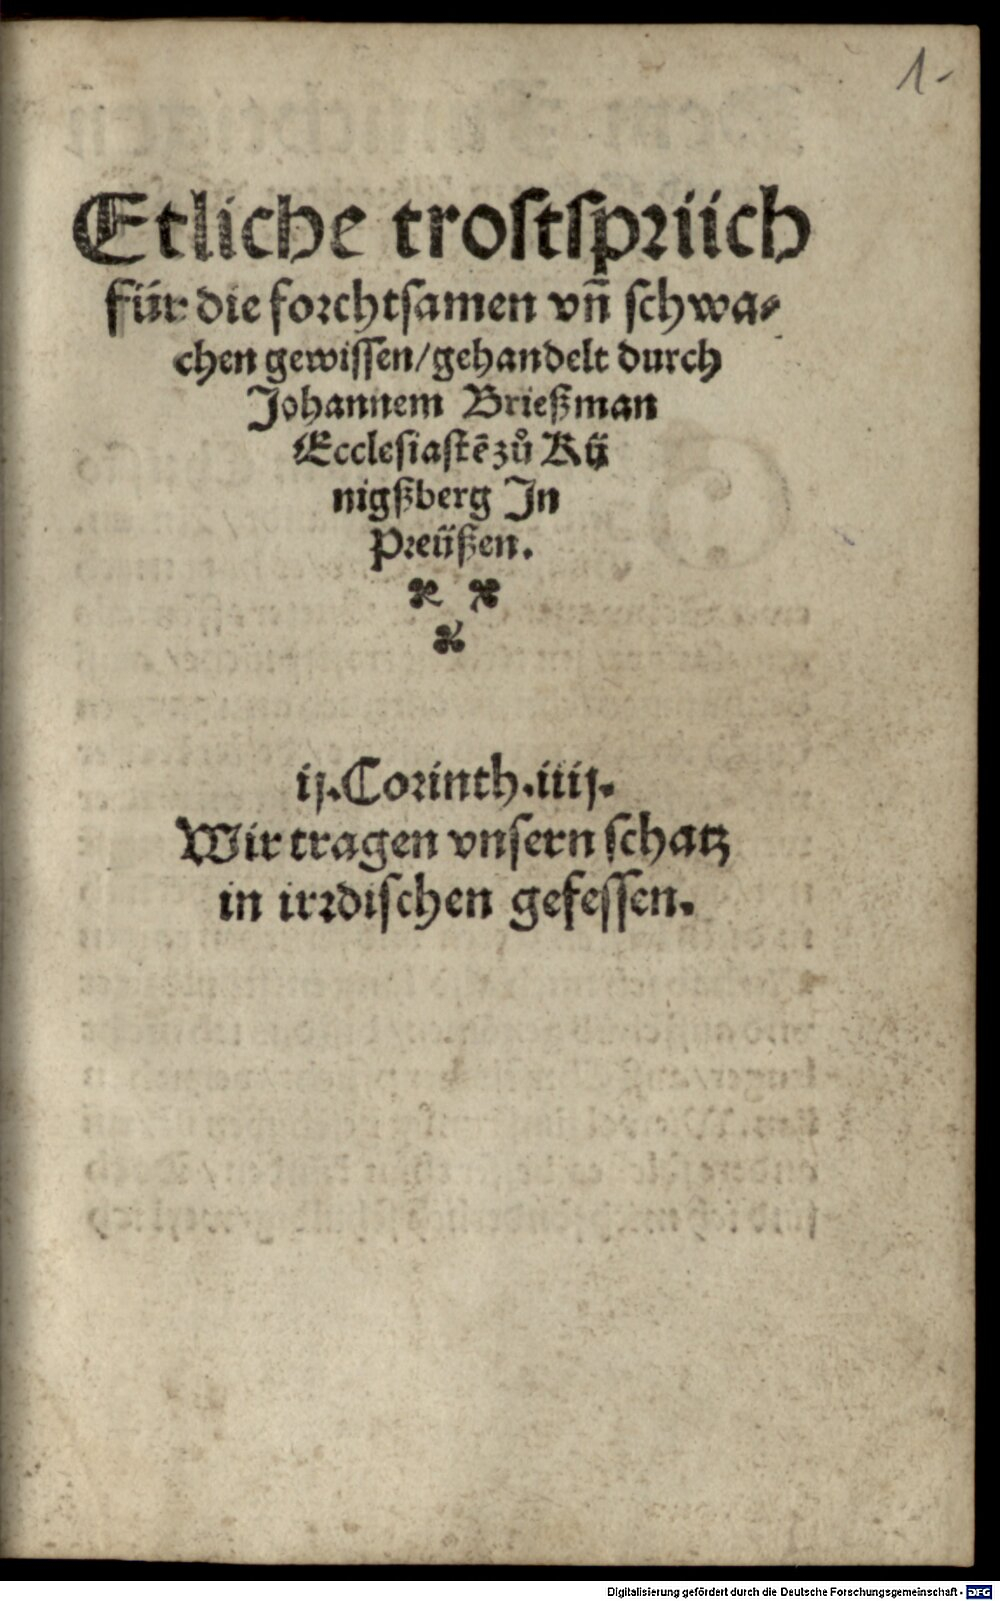 1.
Etliche trostsprüch
für die forchtsamen vñ schwa-
chen gewissen/gehandelt durch
Johannem Brießman
Ecclesiastē zů Kü
nigßberg In
Preüßen.
ij.Corinth.iiij.
Wir tragen vnsern schatz
in irrdischen gefessen.
Digitalisierung gefördert durch die Deutsche Forschungsgemeinschaft - DFG